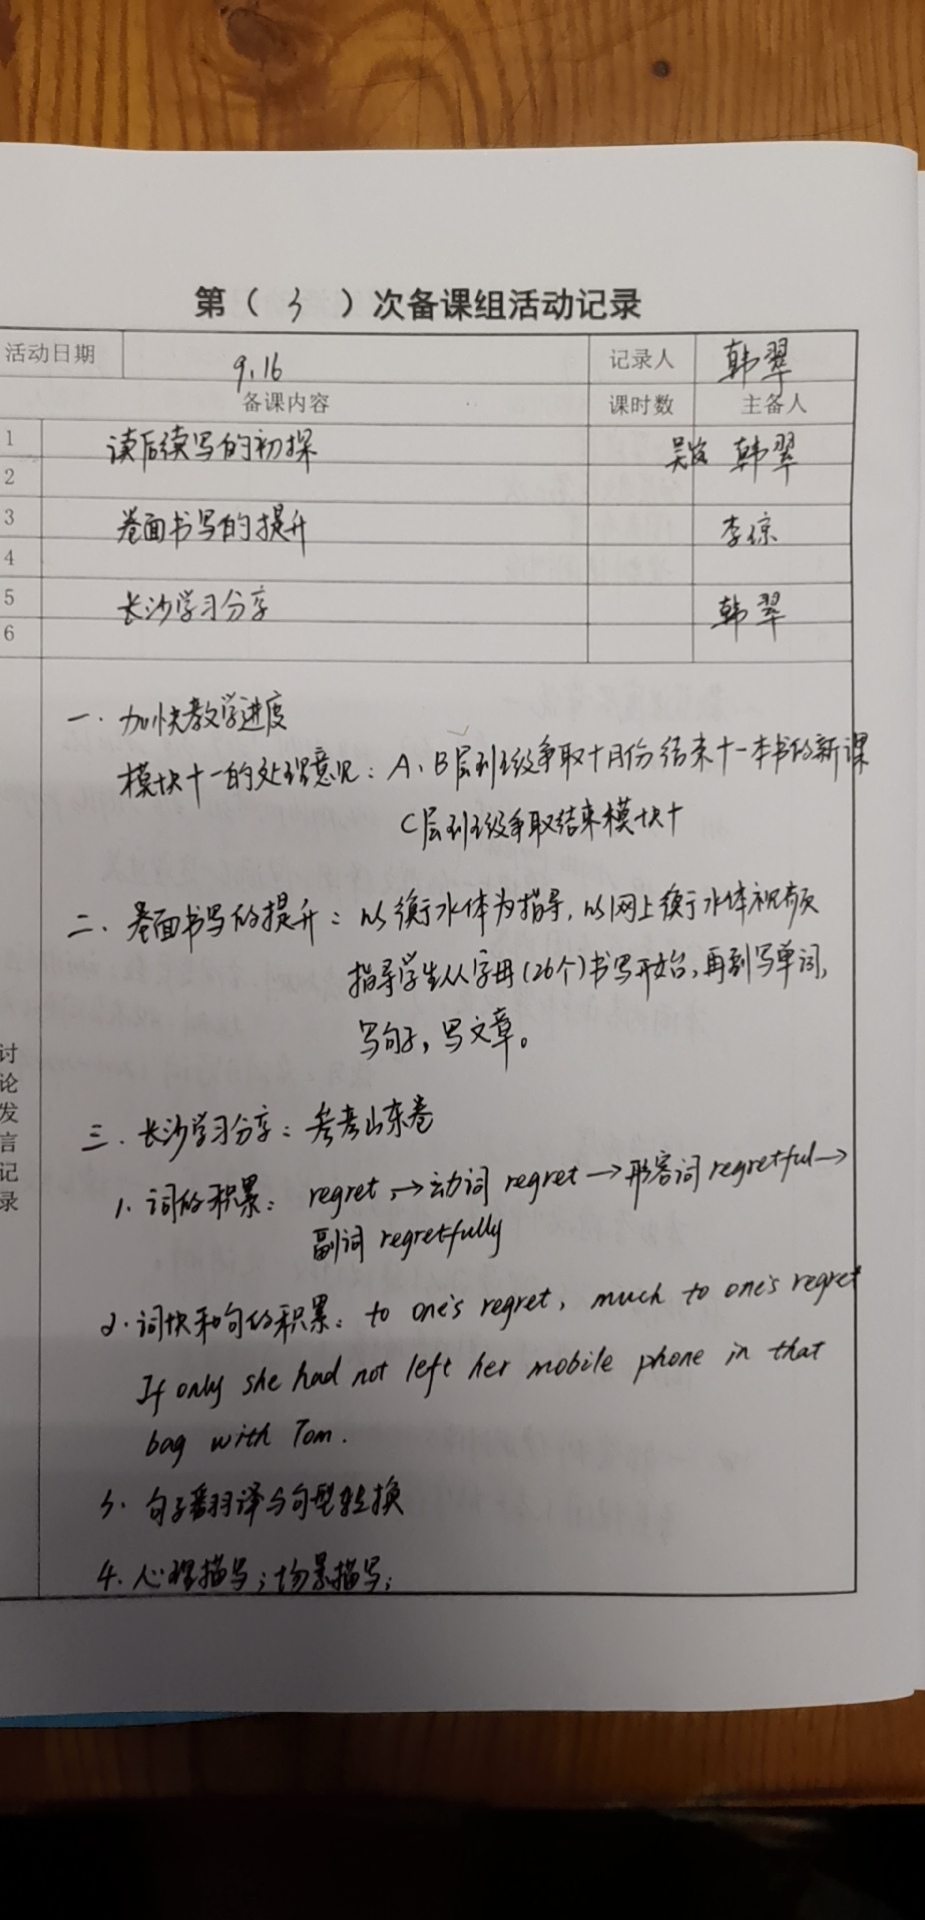 第（3）次备课组活动记录
活动日期 9.16 记录人 韩翠
备课内容 课时数 主备人
1 读后续写的初探 韩翠
2
3 卷面书写的提升 李琼
4
5 长沙学习分享 韩翠
6
讨论发言记录
一. 加快教学进度
模块十一的处理意见：A、B层班级争取十月份结束十一本书的新课
C层班级争取结束模块十
二. 卷面书写的提升：以衡水体为指导，以网上衡水体视频
指导学生从字母(26个)书写开始，再到写单词，
写句子，写文章。
三. 长沙学习分享：参考山东卷
1. 词的积累：regret → 动词 regret → 形容词 regretful →
副词 regretfully
2. 词块和句的积累：to one's regret, much to one's regret
If only she had not left her mobile phone in that
bag with Tom.
3. 句子翻译与句型转换
4. 心理描写；场景描写；